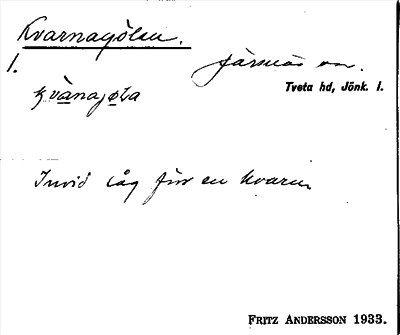 Kvarnagölen.
1.
Järsnäs sn.
Tveta hd, Jönk. l.
kvànajøla
Invid låg förr en kvarn.
FRITZ ANDERSSON 1933.